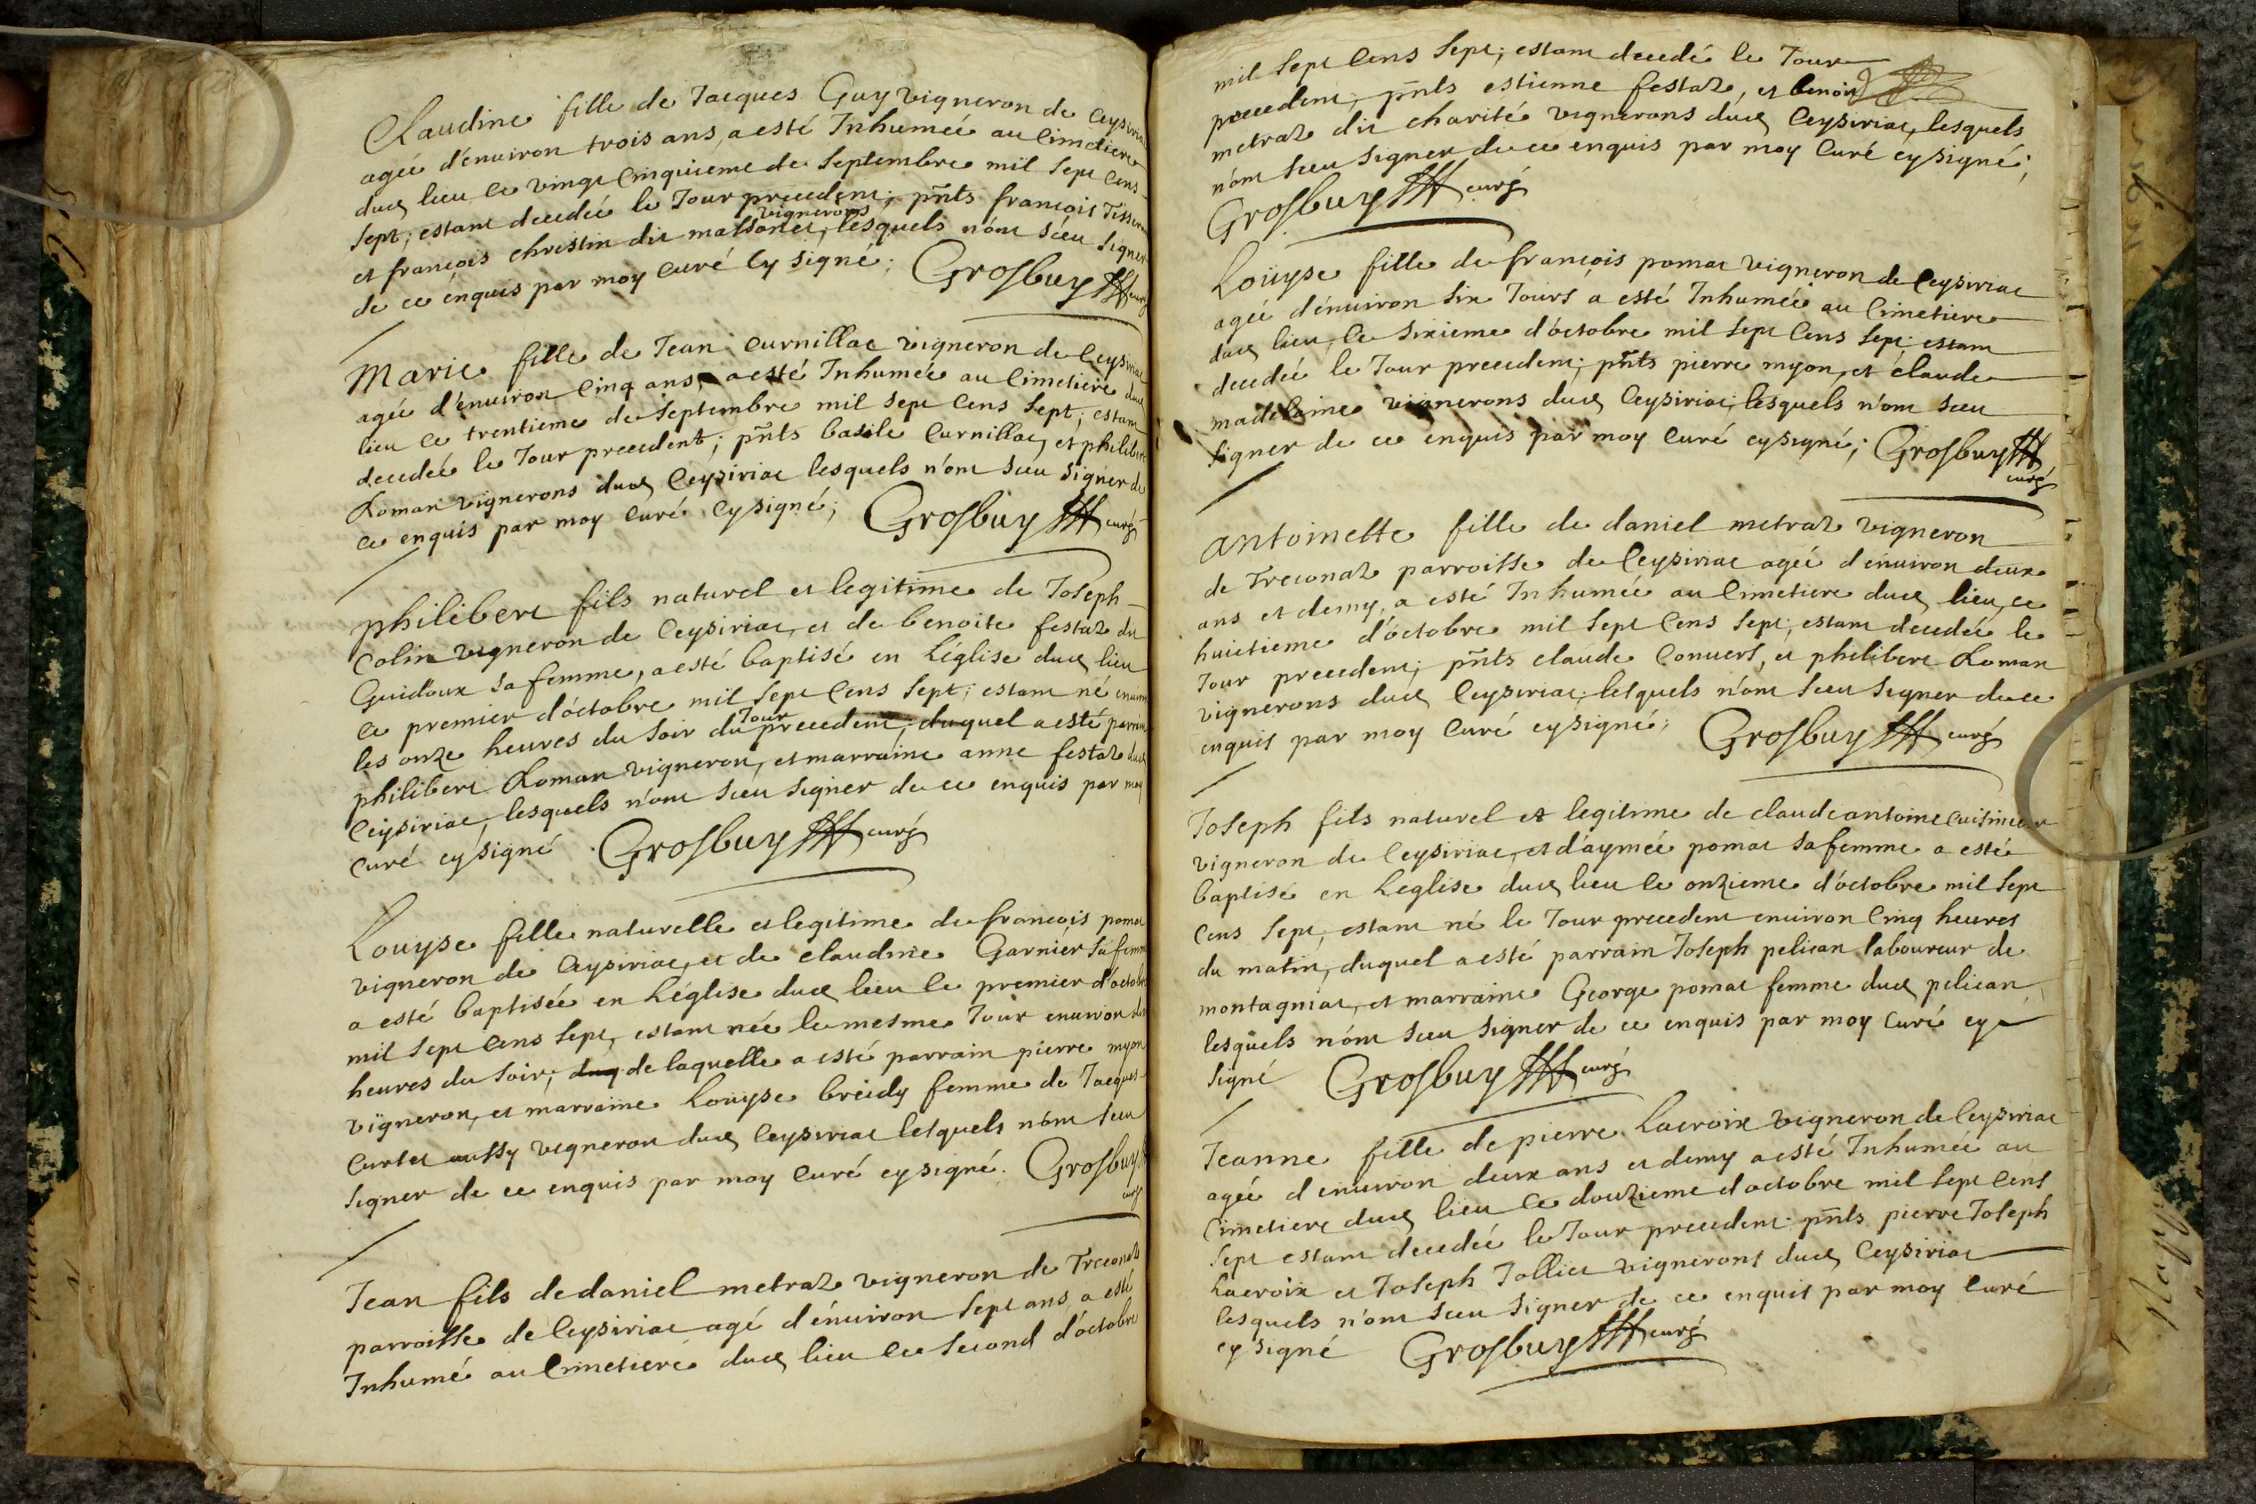 Claudine fille de Jacques Guy vigneron de Ceysiria
agée d'enuiron trois ans, a esté Inhumée au Cimetiere
dud lieu ce vingt Cinquieme de Septembre mil sept Cens
Sept; estant decedée le Jour precedent; pñts francois Tissera
vignerons
et francois christin dit massonet, lesquels n'ont sceu signer
de ce enquis par moy Curé Cy signé; Grosbuy curé
Marie fille de Jean Curnillac vigneron de Ceysiriac
agée d'enuiron Cinq ans, a esté Inhumée au Cimetiere dud
lieu ce trentieme de Septembre mil sept Cens Sept; estant
decedée le Jour precedent; pñts basile Curnillac, et philibert
Roman vignerons dud Ceysiriac lesquels n'ont sceu signer de
ce enquis par moy Curé Cysigné; Grosbuy curé
philibert fils naturel et legitime de Joseph
Colin vigneron de Ceysiriac, et de benoite festaz dit
Guidoux sa femme, a esté baptisé en l'église dud lieu
ce premier d'octobre mil sept Cens Sept; estant né enuiron
Jour
les onze heures du soir du precedent; duquel a esté parrain
philibert Roman vigneron, et marraine anne festaz dud
Ceysiriac, lesquels n'ont sceu signer de ce enquis par moy
Curé cysigné Grosbuy curé
Louyse fille naturelle et legitime de francois pomat
vigneron de Ceysiriac, et de claudine Garnier sa femme
a esté baptisée en l'église dud lieu le premier d'octobre
mil sept Cens Sept, estant née le mesme Jour enuiron
heures du soir; de laquelle a esté parrain pierre myon
vigneron, et marraine Louyse breidy femme de Jacques
Curtet aussy vigneron dud Ceysiriac lesquels n'ont sceu
signer de ce enquis par moy Curé cysigné. Grosbuy
curé
Jean fils de daniel metraz vigneron de Treconaz
parroisse de Ceysiriac agé d'enuiron sept ans, a esté
Inhumé au Cimetiere dud lieu ce second d'octobre
mil sept Cens Sept; estant decedé le Jour
precedent; pñts estienne festaz, et benoit
metraz dit charité vignerons dud Ceysiriac, lesquels
n'ont sceu signer de ce enquis par moy Curé cysigné;
Grosbuy curé
Louyse fille de francois pomat vigneron de Ceysiriac
agée d'enuiron six Jours a esté Inhumée au Cimetiere
dud lieu, le sixieme d'octobre mil sept Cens Sept; estant
decedée le Jour precedent; pñts pierre myon, et claude
madelaine vignerons dud Ceysiriac; lesquels n'ont sceu
signer de ce enquis par moy Curé cysigné; Grosbuy
curé
antoinette fille de daniel metraz vigneron
de Treconaz parroisse de Ceysiriac agée d'enuiron deux
ans et demy, a esté Inhumée au Cimetiere dud lieu, ce
huictieme d'octobre mil sept Cens Sept; estant decedée le
Jour precedent; pñts claude Conuers, et philibert Roman
vignerons dud Ceysiriac; lesquels n'ont sceu signer de ce
enquis par moy Curé cysigné; Grosbuy curé
Joseph fils naturel et legitime de claude antoine Cuisinier
vigneron de Ceysiriac, et d'aymée pomat sa femme a esté
baptisé en l'eglise dud lieu ce onzieme d'octobre mil sept
Cens Sept; estant né le Jour precedent enuiron Cinq heures
du matin, duquel a esté parrain Joseph pelican laboureur de
montagniac, et marraine George pomat femme dud pelican
lesquels n'ont sceu signer de ce enquis par moy Curé cy
signé Grosbuy curé
Jeanne fille de pierre Lacroix vigneron de Ceysiriac
agée d'enuiron deux ans et demy a esté Inhumée au
Cimetiere dud lieu ce douzieme d'octobre mil sept Cens
Sept estant decedée le Jour precedent; pñts pierre Joseph
Lacroix et Joseph Jolliet vignerons dud Ceysiriac
lesquels n'ont sceu signer de ce enquis par moy Curé
cysigné Grosbuy curé